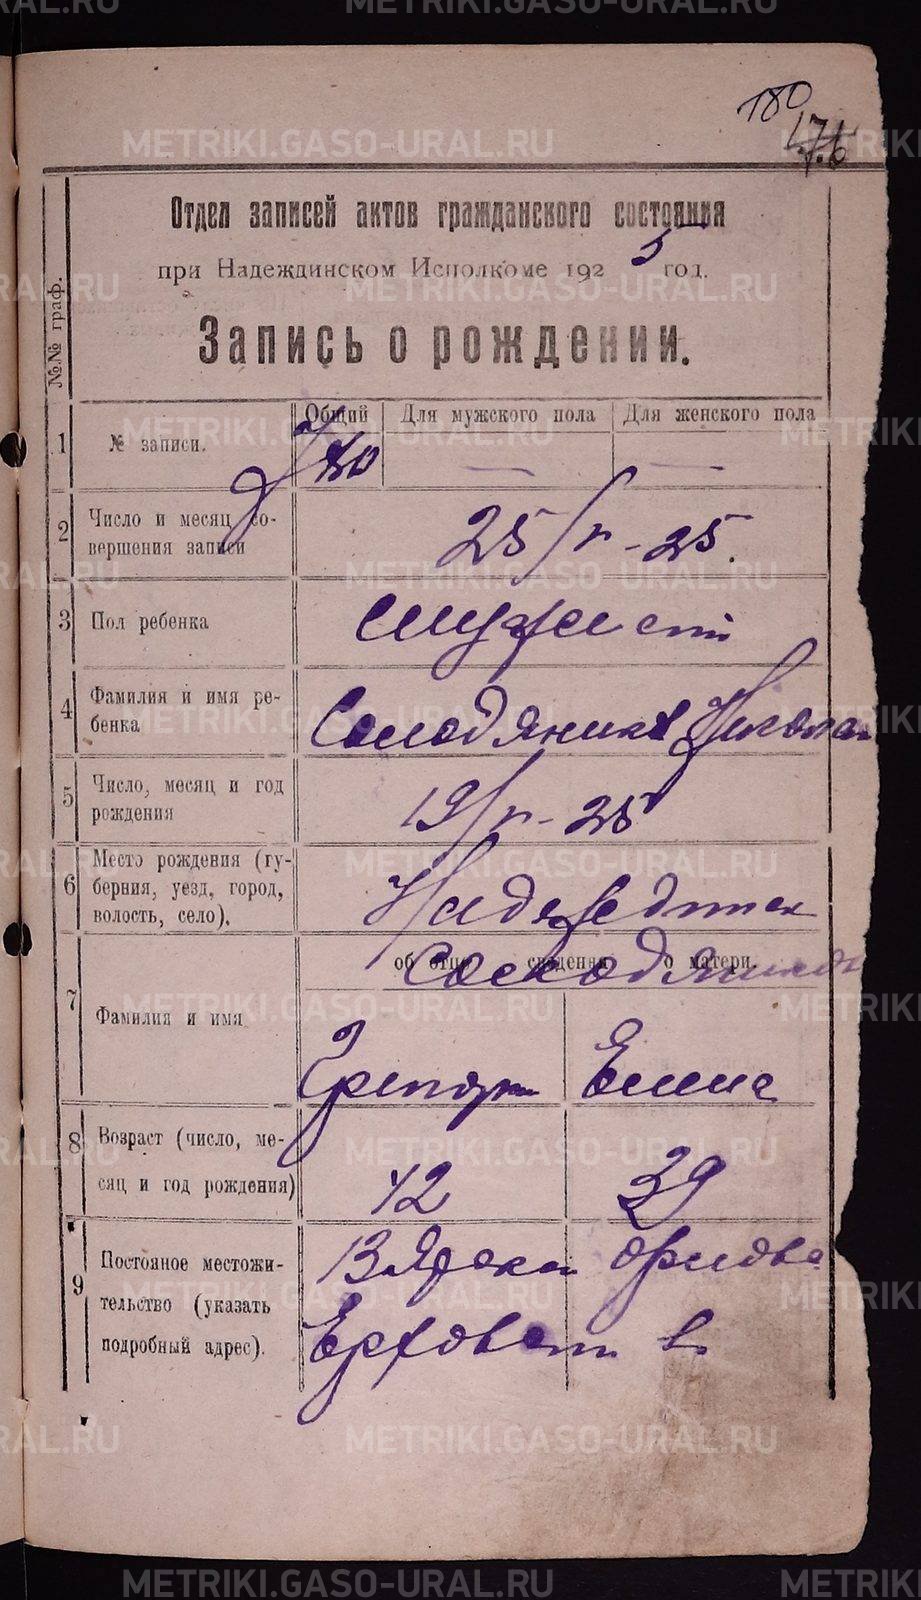 180
176
Отдел записей актов гражданского состояния
при Надеждинском Исполкоме 192 5 год.
Запись о рождении.
№№ граф.
Общий Для мужского пола Для женского пола
1 № записи. 180 — —
2 Число и месяц со-
вершения записи 25/V-25.
3 Пол ребенка мужеск
4 Фамилия и имя ре-
бенка Солодянкин Николай
5 Число, месяц и год
рождения 19/V-25
6 Место рождения (гу-
берния, уезд, город,
волость, село). Надеждинск
об отце сведения о матери.
Солодянкин
7 Фамилия и имя
Григорий Елена
8 Возраст (число, ме-
сяц и год рождения) 42 39
9 Постояное местожи-
тельство (указать
подробный адрес).
Вятской Орлова
METRIKI.GASO-URAL.RU